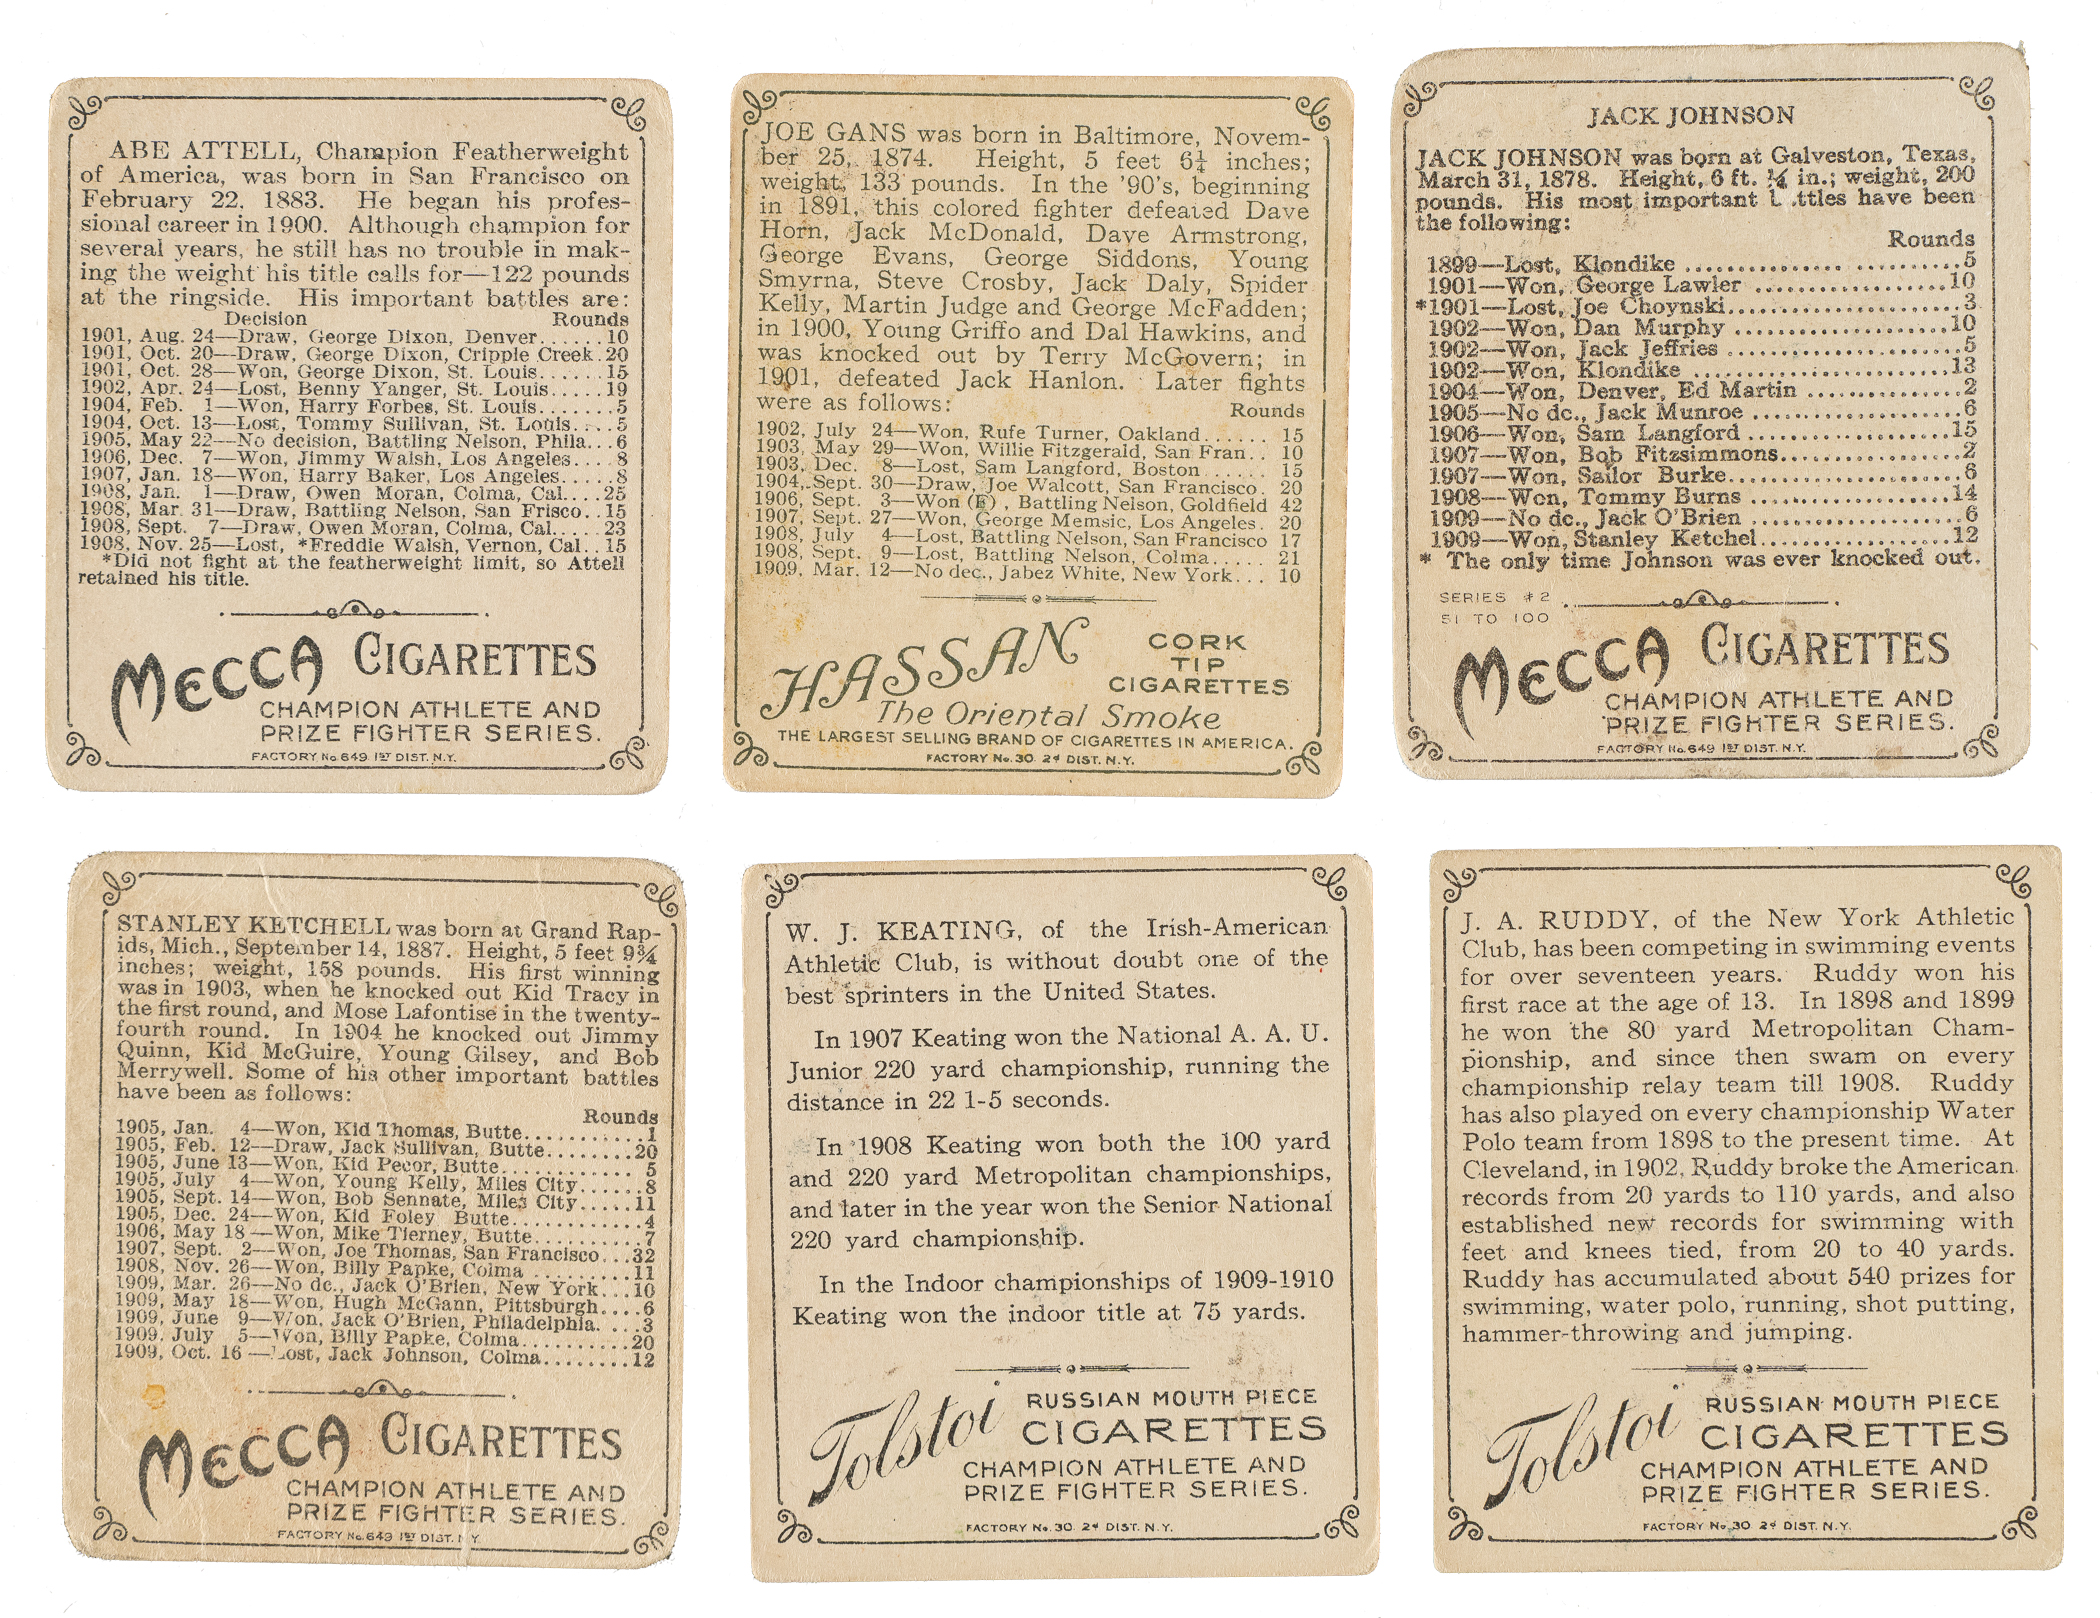 ABE ATTELL, Champion Featherweight
of America, was born in San Francisco on
February 22. 1883. He began his profes-
sional career in 1900. Although champion for
several years, he still has no trouble in mak-
ing the weight his title calls for—122 pounds
at the ringside. His important battles are:
Decision Rounds
1901, Aug. 24—Draw, George Dixon, Denver......10
1901, Oct. 20—Draw, George Dixon, Cripple Creek.20
1901, Oct. 28—Won, George Dixon, St. Louis......15
1902, Apr. 24—Lost, Benny Yanger, St. Louis.....19
1904, Feb. 1—Won, Harry Forbes, St. Louis.......5
1904, Oct. 13—Lost, Tommy Sullivan, St. Louis....5
1905, May 22—No decision, Battling Nelson, Phila...6
1906, Dec. 7—Won, Jimmy Walsh, Los Angeles....8
1907, Jan. 18—Won, Harry Baker, Los Angeles.....8
1908, Jan. 1—Draw, Owen Moran, Colma, Cal....25
1908, Mar. 31—Draw, Battling Nelson, San Frisco..15
1908, Sept. 7—Draw, Owen Moran, Colma, Cal.....23
1908, Nov. 25—Lost, *Freddie Walsh, Vernon, Cal..15
*Did not fight at the featherweight limit, so Attell
retained his title.
MECCA CIGARETTES
CHAMPION ATHLETE AND
PRIZE FIGHTER SERIES.
FACTORY No. 649 1ST DIST. N.Y.
JOE GANS was born in Baltimore, Novem-
ber 25, 1874. Height, 5 feet 6¼ inches;
weight, 133 pounds. In the '90's, beginning
in 1891, this colored fighter defeated Dave
Horn, Jack McDonald, Dave Armstrong,
George Evans, George Siddons, Young
Smyrna, Steve Crosby, Jack Daly, Spider
Kelly, Martin Judge and George McFadden;
in 1900, Young Griffo and Dal Hawkins, and
was knocked out by Terry McGovern; in
1901, defeated Jack Hanlon. Later fights
were as follows: Rounds
1902, July 24—Won, Rufe Turner, Oakland...... 15
1903, May 29—Won, Willie Fitzgerald, San Fran.. 10
1903, Dec. 8—Lost, Sam Langford, Boston ...... 15
1904, Sept. 30—Draw, Joe Walcott, San Francisco. 20
1906, Sept. 3—Won (F), Battling Nelson, Goldfield 42
1907, Sept. 27—Won, George Memsic, Los Angeles. 20
1908, July 4—Lost, Battling Nelson, San Francisco 17
1908, Sept. 9—Lost, Battling Nelson, Colma..... 21
1909, Mar. 12—No dec., Jabez White, New York... 10
HASSAN CORK
TIP
CIGARETTES
The Oriental Smoke
THE LARGEST SELLING BRAND OF CIGARETTES IN AMERICA.
FACTORY No. 30 2d DIST. N.Y.
JACK JOHNSON
JACK JOHNSON was born at Galveston, Texas,
March 31, 1878. Height, 6 ft. ¼ in.; weight, 200
pounds. His most important ttles have been
the following:
Rounds
1899—Lost, Klondike ....................5
1901—Won, George Lawler ..................10
*1901—Lost, Joe Choynski.....................3
1902—Won, Dan Murphy ....................10
1902—Won, Jack Jeffries .....................5
1902—Won, Klondike .......................13
1904—Won, Denver, Ed Martin ..............2
1905—No dc., Jack Munroe ..................6
1906—Won, Sam Langford ..................15
1907—Won, Bob Fitzsimmons.................2
1907—Won, Sailor Burke.....................6
1908—Won, Tommy Burns ..................14
1909—No dc., Jack O'Brien ..................6
1909—Won, Stanley Ketchel..................12
* The only time Johnson was ever knocked out.
SERIES #2
51 TO 100
MECCA CIGARETTES
CHAMPION ATHLETE AND
PRIZE FIGHTER SERIES.
FACTORY No. 649 1ST DIST. N.Y.
STANLEY KETCHELL was born at Grand Rap-
ids, Mich., September 14, 1887. Height, 5 feet 9¾
inches; weight, 158 pounds. His first winning
was in 1903, when he knocked out Kid Tracy in
the first round, and Mose Lafontise in the twenty-
fourth round. In 1904 he knocked out Jimmy
Quinn, Kid McGuire, Young Gilsey, and Bob
Merrywell. Some of his other important battles
have been as follows:
Rounds
1905, Jan. 4—Won, Kid Thomas, Butte...........1
1905, Feb. 12—Draw, Jack Sullivan, Butte........20
1905, June 13—Won, Kid Pecor, Butte............5
1905, July 4—Won, Young Kelly, Miles City......8
1905, Sept. 14—Won, Bob Sennate, Miles City.....11
1905, Dec. 24—Won, Kid Foley Butte............4
1906, May 18—Won, Mike Tierney, Butte..........7
1907, Sept. 2—Won, Joe Thomas, San Francisco...32
1908, Nov. 26—Won, Billy Papke, Colma .........11
1909, Mar. 26—No dc., Jack O'Brien, New York...10
1909, May 18—Won, Hugh McGann, Pittsburgh....6
1909, June 9—Won, Jack O'Brien, Philadelphia. ...3
1909. July 5—Won, Billy Papke, Colma..........20
1909, Oct. 16—Lost, Jack Johnson, Colma........12
MECCA CIGARETTES
CHAMPION ATHLETE AND
PRIZE FIGHTER SERIES.
FACTORY No. 649 1ST DIST. N.Y.
W. J. KEATING, of the Irish-American
Athletic Club, is without doubt one of the
best sprinters in the United States.
In 1907 Keating won the National A. A. U.
Junior 220 yard championship, running the
distance in 22 1-5 seconds.
In 1908 Keating won both the 100 yard
and 220 yard Metropolitan championships,
and later in the year won the Senior National
220 yard championship.
In the Indoor championships of 1909-1910
Keating won the indoor title at 75 yards.
Tolstoi RUSSIAN MOUTH PIECE
CIGARETTES
CHAMPION ATHLETE AND
PRIZE FIGHTER SERIES.
FACTORY No. 30 2d DIST. N.Y.
J. A. RUDDY, of the New York Athletic
Club, has been competing in swimming events
for over seventeen years. Ruddy won his
first race at the age of 13. In 1898 and 1899
he won the 80 yard Metropolitan Cham-
pionship, and since then swam on every
championship relay team till 1908. Ruddy
has also played on every championship Water
Polo team from 1898 to the present time. At
Cleveland, in 1902, Ruddy broke the American
records from 20 yards to 110 yards, and also
established new records for swimming with
feet and knees tied, from 20 to 40 yards.
Ruddy has accumulated about 540 prizes for
swimming, water polo, running, shot putting,
hammer-throwing and jumping.
Tolstoi RUSSIAN MOUTH PIECE
CIGARETTES
CHAMPION ATHLETE AND
PRIZE FIGHTER SERIES.
FACTORY No. 30 2d DIST. N.Y.